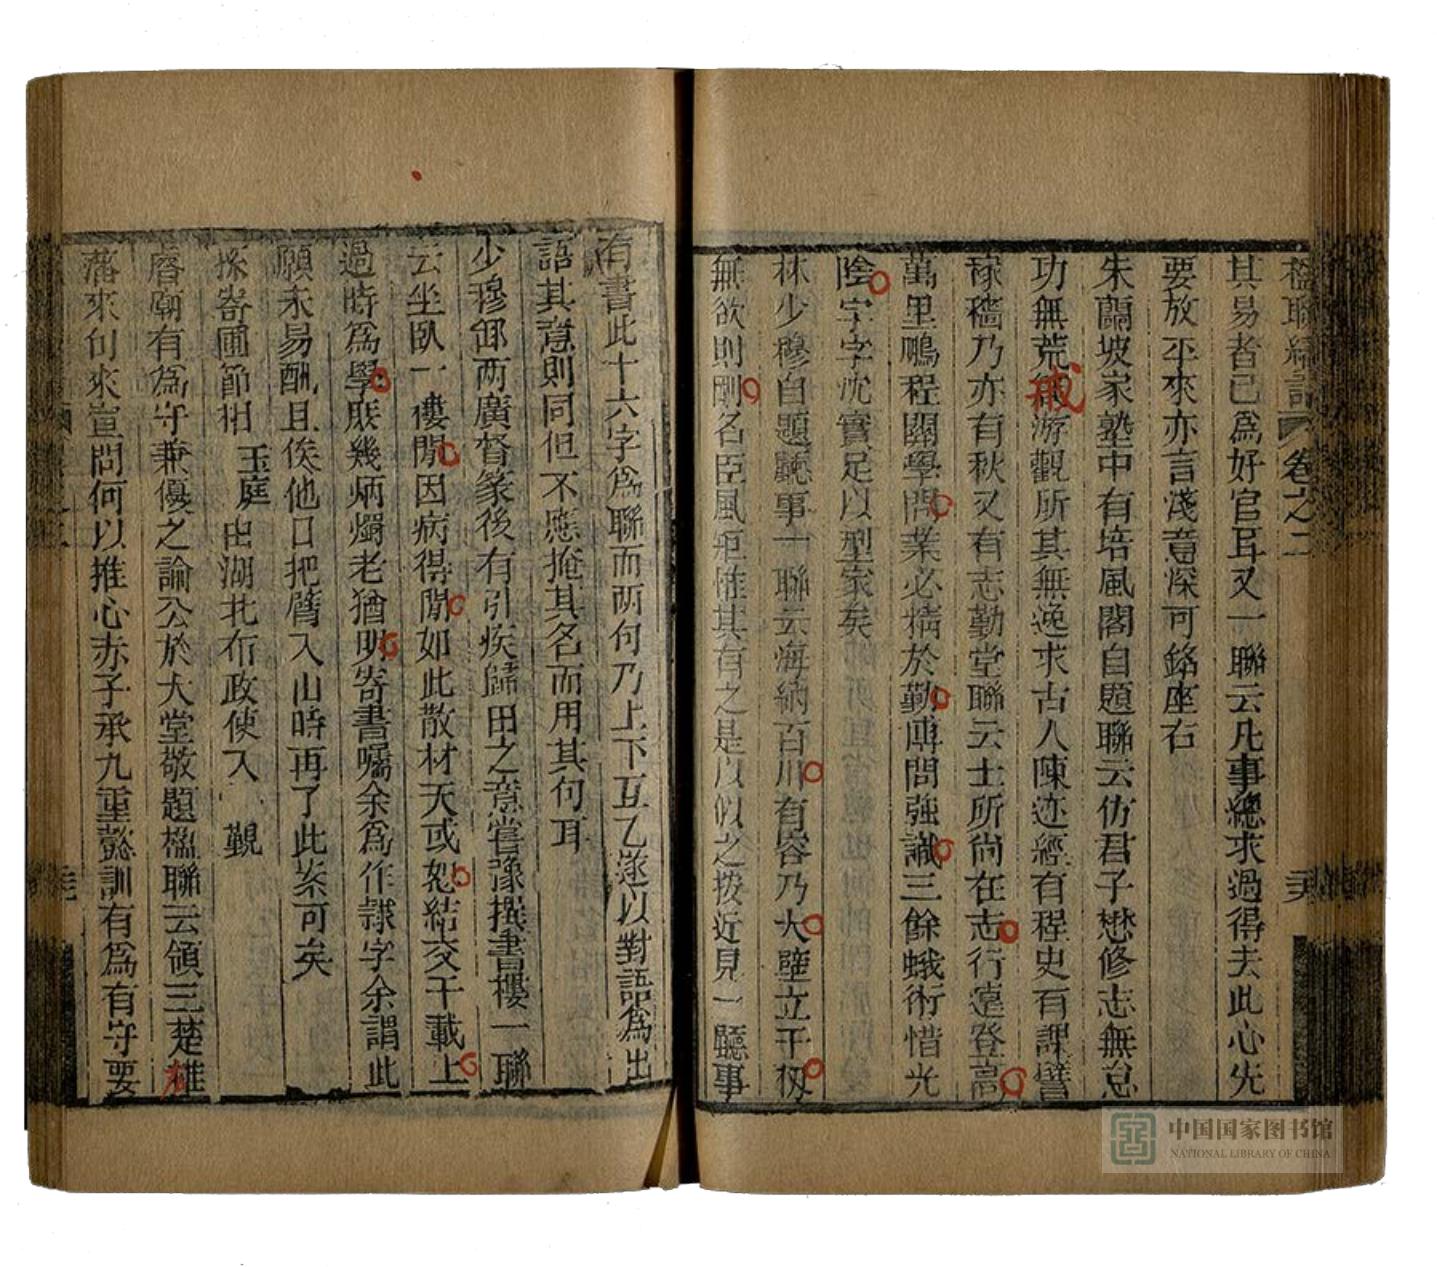 楹聯續話 卷之二
其易者已爲好官耳又一聯云凡事總求過得去此心先
要放平來亦言淺意深可銘座右
朱蘭坡家塾中有培風閣自題聯云仿君子懋修志無怠
功無荒戒游觀所其無逸求古人陳迹經有程史有課嘗
稼穡乃亦有秋又有志勤堂聯云士所尚在志行遠登高
萬里鵬程關學問業必精於勤博問強識三餘蛾術惜光
陰字字沈實足以型家矣
林少穆自題聽事一聯云海納百川有容乃大壁立千仞
無欲則剛名臣風矩惟其有之是以似之按近見一聽事
有書此十六字爲聯而兩句乃上下互乙遂以對語爲出
語其意則同但不應掩其名而用其句耳
少穆卸兩廣督篆後有引疾歸田之意嘗豫撰書樓一聯
云坐臥一樓閒因病得閒如此散材天或恕結交千載上
過時爲學庶幾炳燭老猶明寄書囑余爲作隸字余謂此
願未易酬且俟他日把臂入山時再了此案可矣
孫寄圃節相 玉庭 由湖北布政使入 覲
睿廟有爲守兼優之論公於大堂敬題楹聯云領三楚雄
藩來旬來宣問何以推心赤子承九重懿訓有爲有守要
中国国家图书馆
NATIONAL LIBRARY OF CHINA